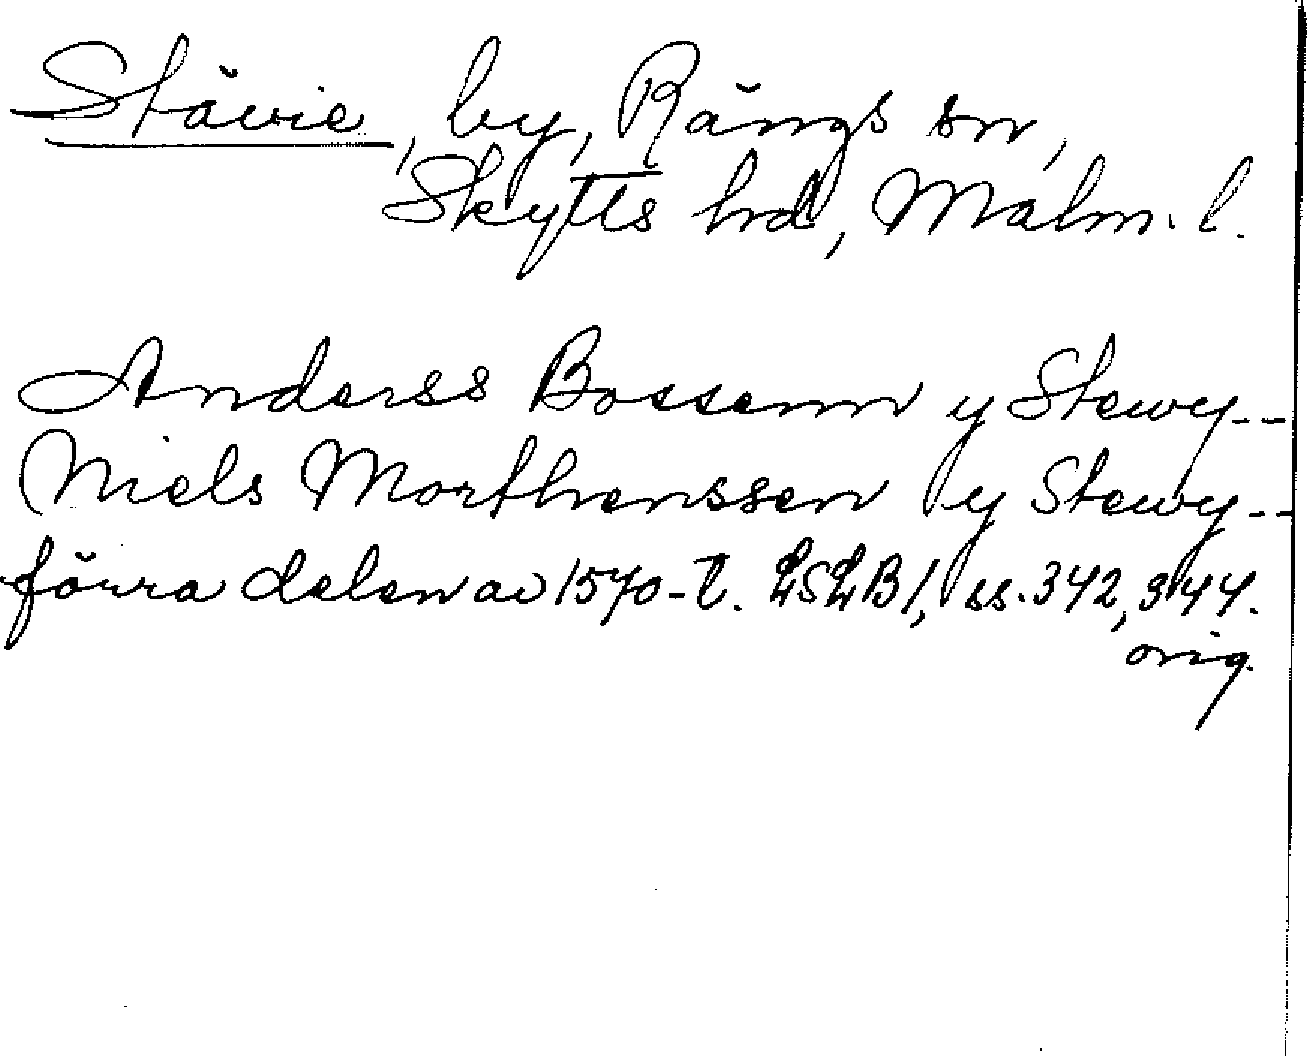 Stävie, by, Rängs sn,
Skytts hd, Malm. l.
Anderss Bossenn y Stewy--
Niels Morthenssen y Stewy--
förra delen av 1570-t. LSLB1, ss. 342, 344.
orig.